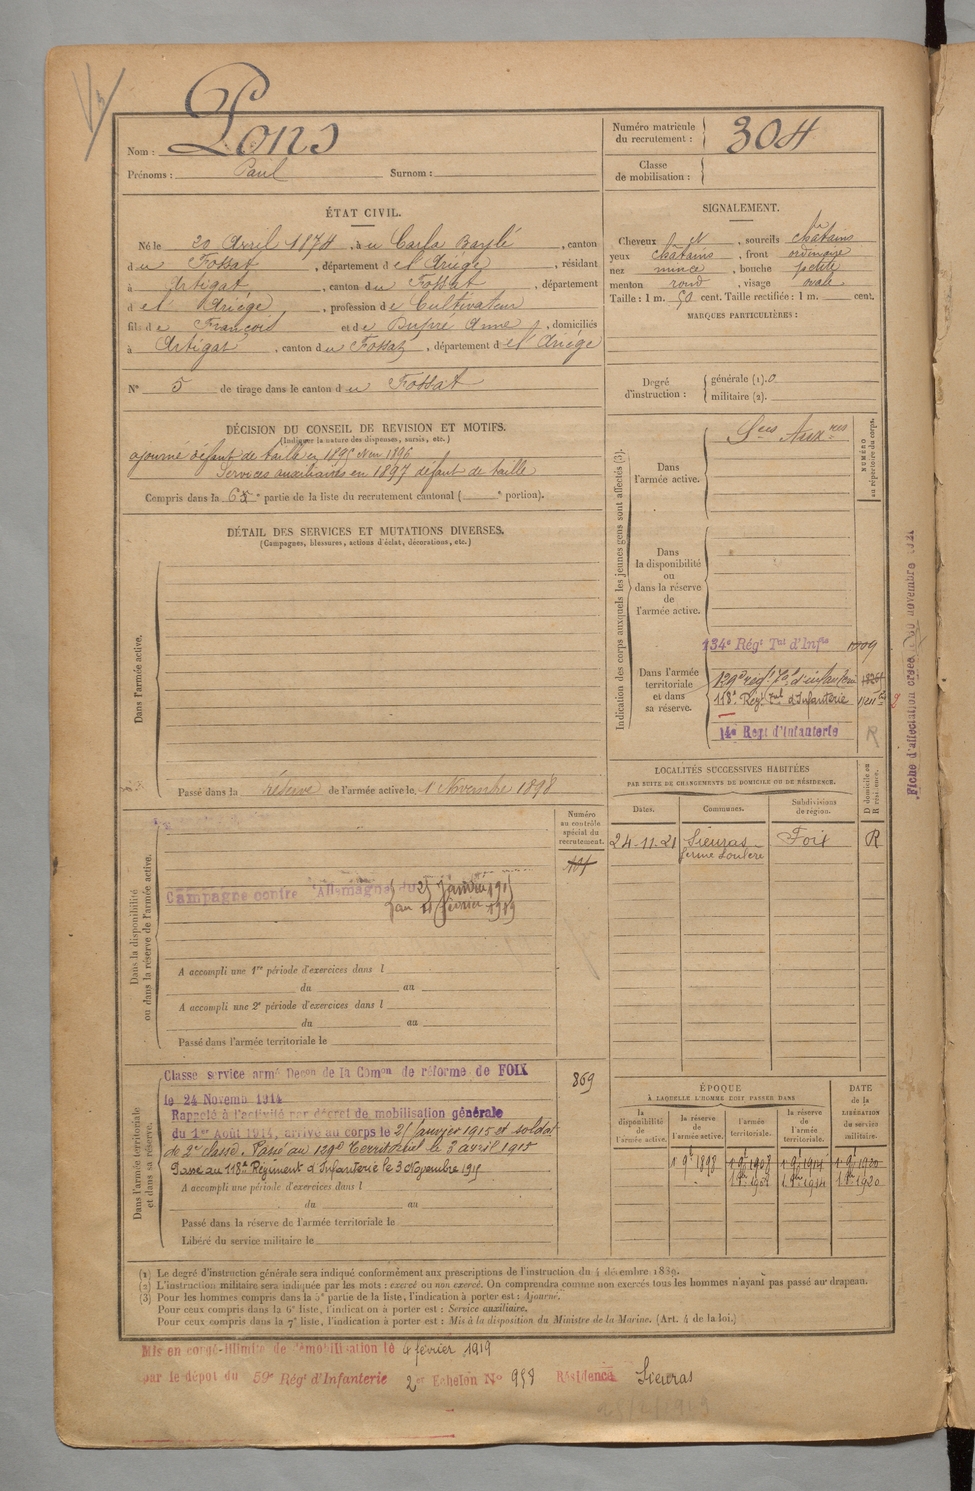 Nom : Pons
Prénoms : Paul Surnom :
Numéro matricule du recrutement : 304
Classe de mobilisation :
ÉTAT CIVIL.
Né le 20 Avril 1874, à u Carla Bayle, canton
du Fossat, département de l'Ariège, résidant
à Artigat, canton du Fossat, département
de l'Ariège, profession de Cultivateur
fils de François et de Dupré Anne, domiciliés
à Artigat, canton du Fossat, département de l'Ariège
N° 5 de tirage dans le canton du Fossat
SIGNALEMENT.
Cheveux et, sourcils châtains
yeux châtains, front ordinaire
nez mince, bouche petite
menton rond, visage ovale
Taille : 1 m. 50 cent. Taille rectifiée : 1 m. cent.
MARQUES PARTICULIÈRES :
Degré d'instruction : générale (1). 0
militaire (2).
DÉCISION DU CONSEIL DE REVISION ET MOTIFS.
(Indiquer la nature des dispenses, sursis, etc.)
ajourné défaut de taille en 1895 & en 1896
Services auxiliaires en 1897 défaut de taille
Compris dans la 6e partie de la liste du recrutement cantonal ( e portion).
DÉTAIL DES SERVICES ET MUTATIONS DIVERSES.
(Campagnes, blessures, actions d'éclat, décorations, etc.)
Dans l'armée active.
Passé dans la réserve de l'armée active le 1 Novembre 1898
Indication des corps auxquels les jeunes gens sont affectés (3).
NUMÉRO au répertoire du corps.
Dans l'armée active.
Sces Auxres
Dans la disponibilité ou dans la réserve de l'armée active.
Dans l'armée territoriale et dans sa réserve.
134e Régt Tal d'Infie 1709
129e régt Tal d'infanterie
118e Régt Tal d'Infanterie
14e Régt d'Infanterie R
Fiche d'affectation créée novembre
LOCALITÉS SUCCESSIVES HABITÉES
PAR SUITE DE CHANGEMENTS DE DOMICILE OU DE RÉSIDENCE.
Dates. Communes. Subdivisions de région. D domicile ou R résidence.
24-11-21 Sieuras Foix R
Numéro au contrôle spécial du recrutement.
Dans la disponibilité ou dans la réserve de l'armée active.
Campagne contre l'Allemagne du 25 janvier 1915
au février 1919
A accompli une 1re période d'exercices dans l
du au
A accompli une 2e période d'exercices dans l
du au
Passé dans l'armée territoriale le
Dans l'armée territoriale et dans sa réserve.
Classe service armé Decon de la Comon de réforme de FOIX
le 24 Novemb 1914
869
Rappelé à l'activité par décret de mobilisation générale
du 1er Août 1914, arrivé au corps le 25 janvier 1915 et soldat
de 2e classe. Passé au 129e Territorial le 3 avril 1915
Passé au 118e Régiment d'Infanterie le 3 Novembre 1915
A accompli une période d'exercices dans l
du au
Passé dans la réserve de l'armée territoriale le
Libéré du service militaire le
ÉPOQUE
À LAQUELLE L'HOMME DOIT PASSER DANS
la disponibilité de l'armée active.
la réserve de l'armée active.
l'armée territoriale.
la réserve de l'armée territoriale.
DATE de la LIBÉRATION du service militaire.
1 9e 1898 1 9e 1908 1 9e 1914 1 9e 1920
(1) Le degré d'instruction générale sera indiqué conformément aux prescriptions de l'instruction du 4 décembre 1889.
(2) L'instruction militaire sera indiquée par les mots : exercé ou non exercé. On comprendra comme non exercés tous les hommes n'ayant pas passé au drapeau.
(3) Pour les hommes compris dans la 5e partie de la liste, l'indication à porter est : Ajourné.
Pour ceux compris dans la 6e liste, l'indication à porter est : Service auxiliaire.
Pour ceux compris dans la 7e liste, l'indication à porter est : Mis à la disposition du Ministre de la Marine. (Art. 4 de la loi.)
Mis en congé-illimité de démobilisation le 4 février 1919
par le dépôt du 59e Régt d'Infanterie 2e Echelon N° 958 Résidence Sieuras